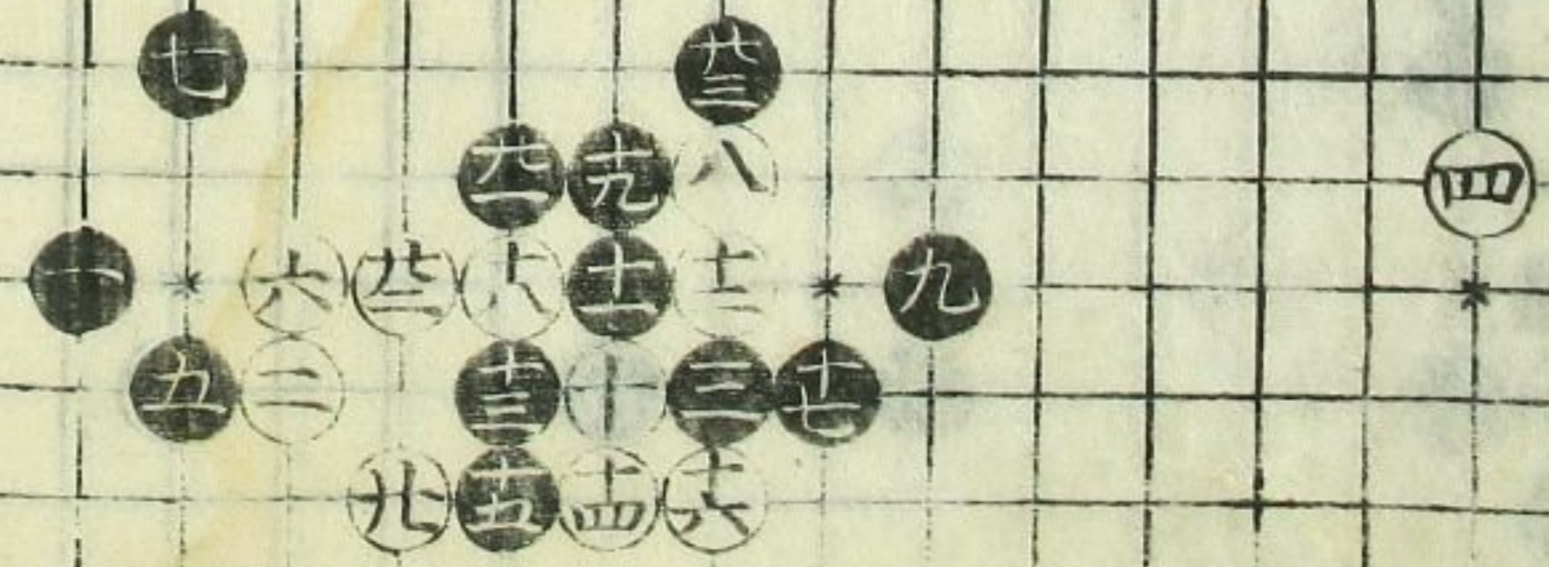 七 廿三
廿一 十九 八 四
一 六 廿二 十八 十一 十二 九
五 二 十三 十 三 十七
廿 十五 十四 十六